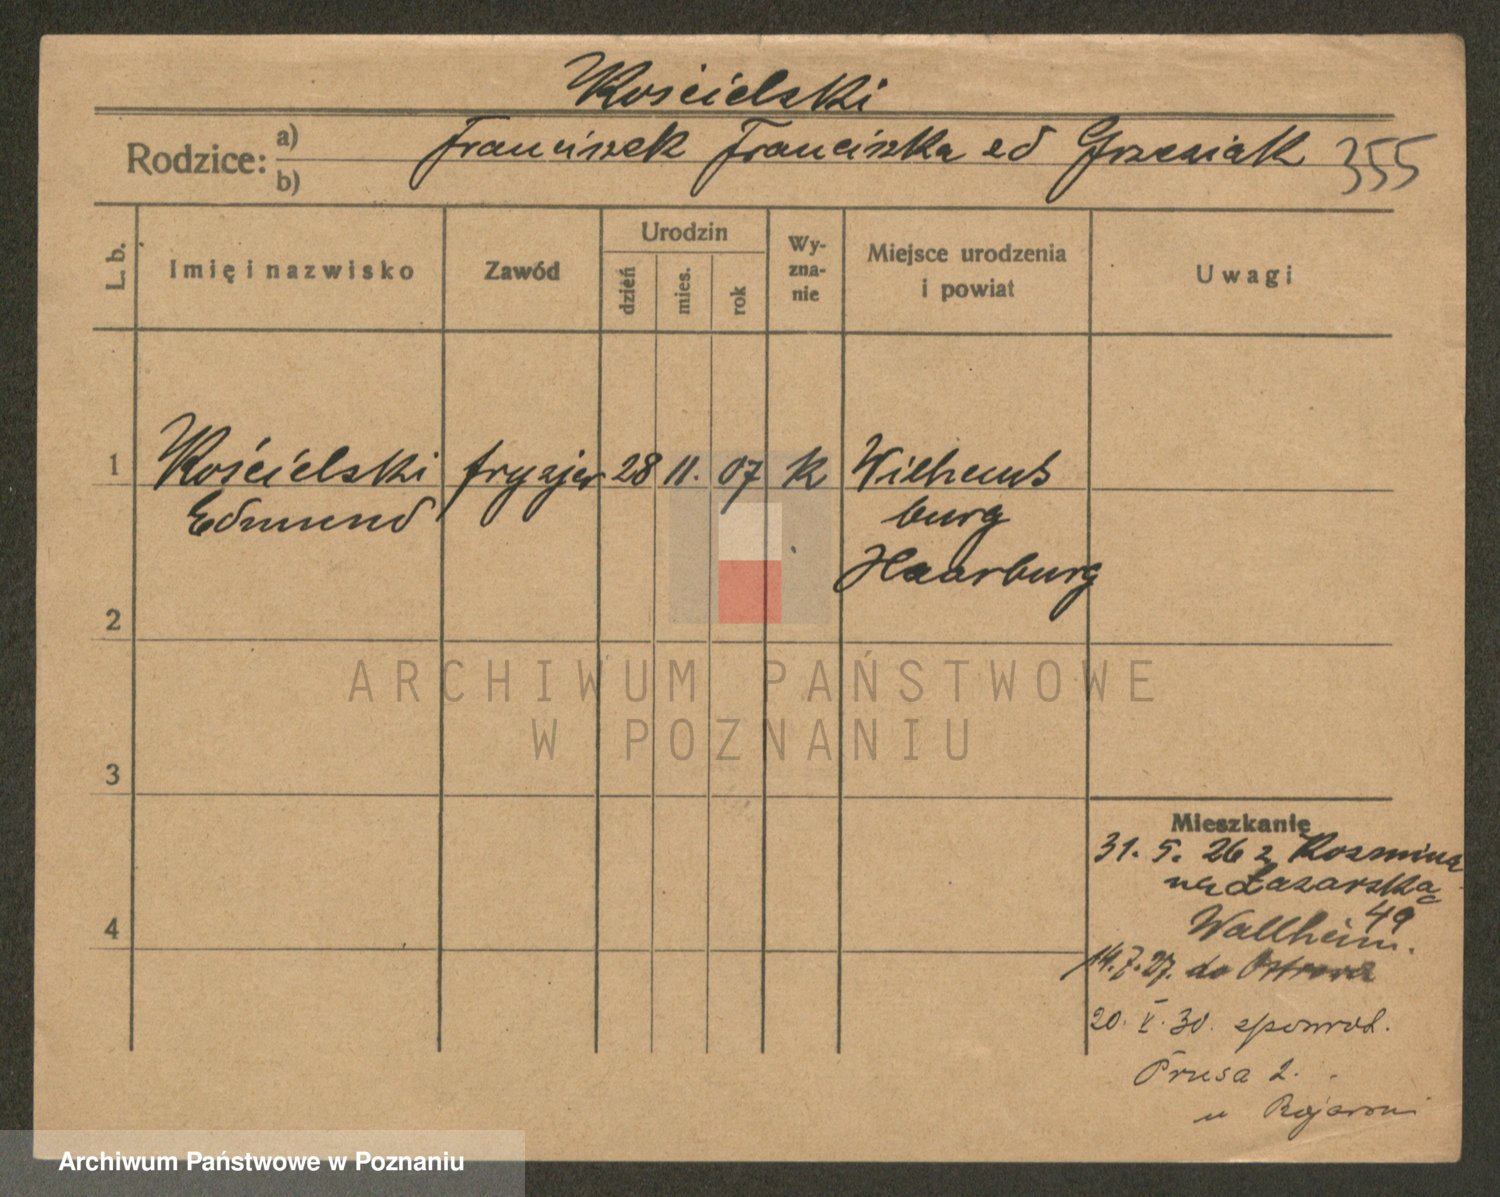 Kościelski
Rodzice: a) Franciszek Franciszka zd Grzesiak 355
b)
L. b.
Imię i nazwisko
Zawód
Urodzin
dzień
mies.
rok
Wy-
zna-
nie
Miejsce urodzenia
i powiat
Uwagi
1 Kościelski fryzjer 28 11. 07 k Wilhelms
Edmund burg
Haarburg
2
ARCHIWUM PAŃSTWOWE
W POZNANIU
3
Mieszkanie
31. 5. 26 z Kozmina
na Łazarską
49
4 Wallheim.
14.7.27. do Ostrowa
20. V. 30. zpowrot.
Prusa 2.
u
Archiwum Państwowe w Poznaniu